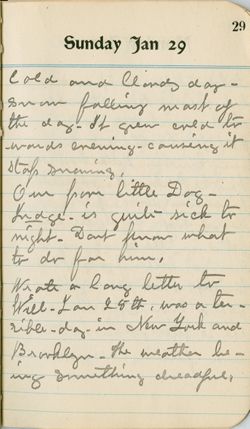 29
Sunday Jan 29
Cold and Cloudy day -
snow falling most of
the day - It grew cold to
wards evening - causing it
stop snowing.
Our poor little Dog -
is quite sick to
night - Dont know what
to do for him.
Wrote a long letter to
Will - Jan 28th, was a ter-
rible - day - in New York and
Brooklyn - The weather be-
ing something dreadful.